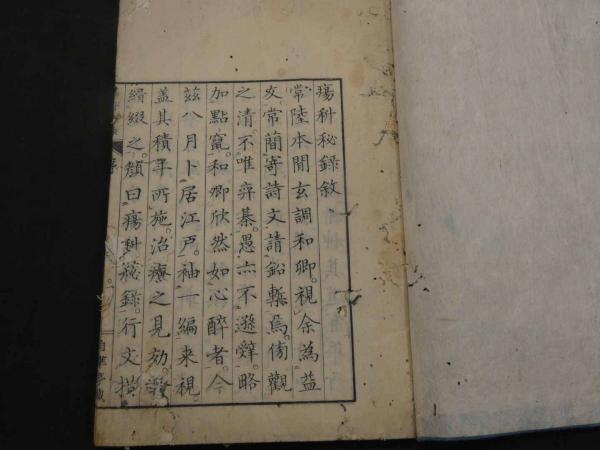 瘍科秘録敘
常陸本間玄調和卿。視余為益
友。常簡寄詩文。請鉛槧焉。傍觀
之清。不唯弈棊。愚亦不遜辭。略
加點竄。和卿欣然如心醉者。今
茲八月卜居江戸。袖一編来視
蓋其積年所施。治療之見効。
綴之。顏曰瘍科秘錄。行文
序